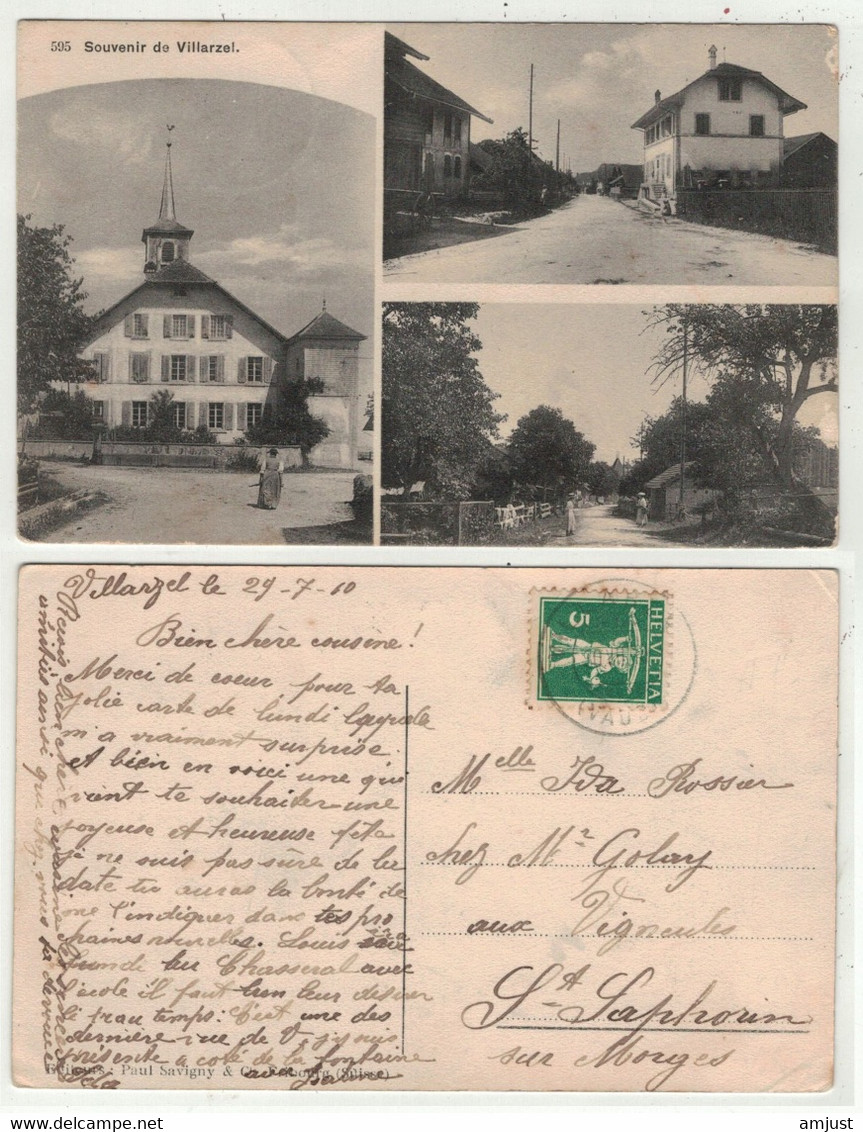 595 Souvenir de Villarzel.
Villarzel le 29-7-10
Bien chère cousine!
Merci de coeur pour ta
jolie carte de lundi laquelle
m'a vraiment surprise.
Et bien en voici une qui
vient te souhaiter une
joyeuse et heureuse fête
je ne suis pas sûre de la
date tu auras la bonté de
me l'indiquer dans tes pro
chaines nouvelles. Louis
lundi au Chasseral avec
l'école il faut leur désirer
le beau temps. C'est une des
dernière vue de V. j'y suis
présente a coté de la fontaine
avec
Reçois bien chère cousine
amitiés ainsi que chez vous ta dévouée
Ida
Editeurs: Paul Savigny & Cie, Fribourg (Suisse)
HELVETIA
5
(VAUD)
Melle Ida Rossier
chez Mr Golay
aux Vigneules
St Saphorin
sur Morges
amjust
delcampe.net